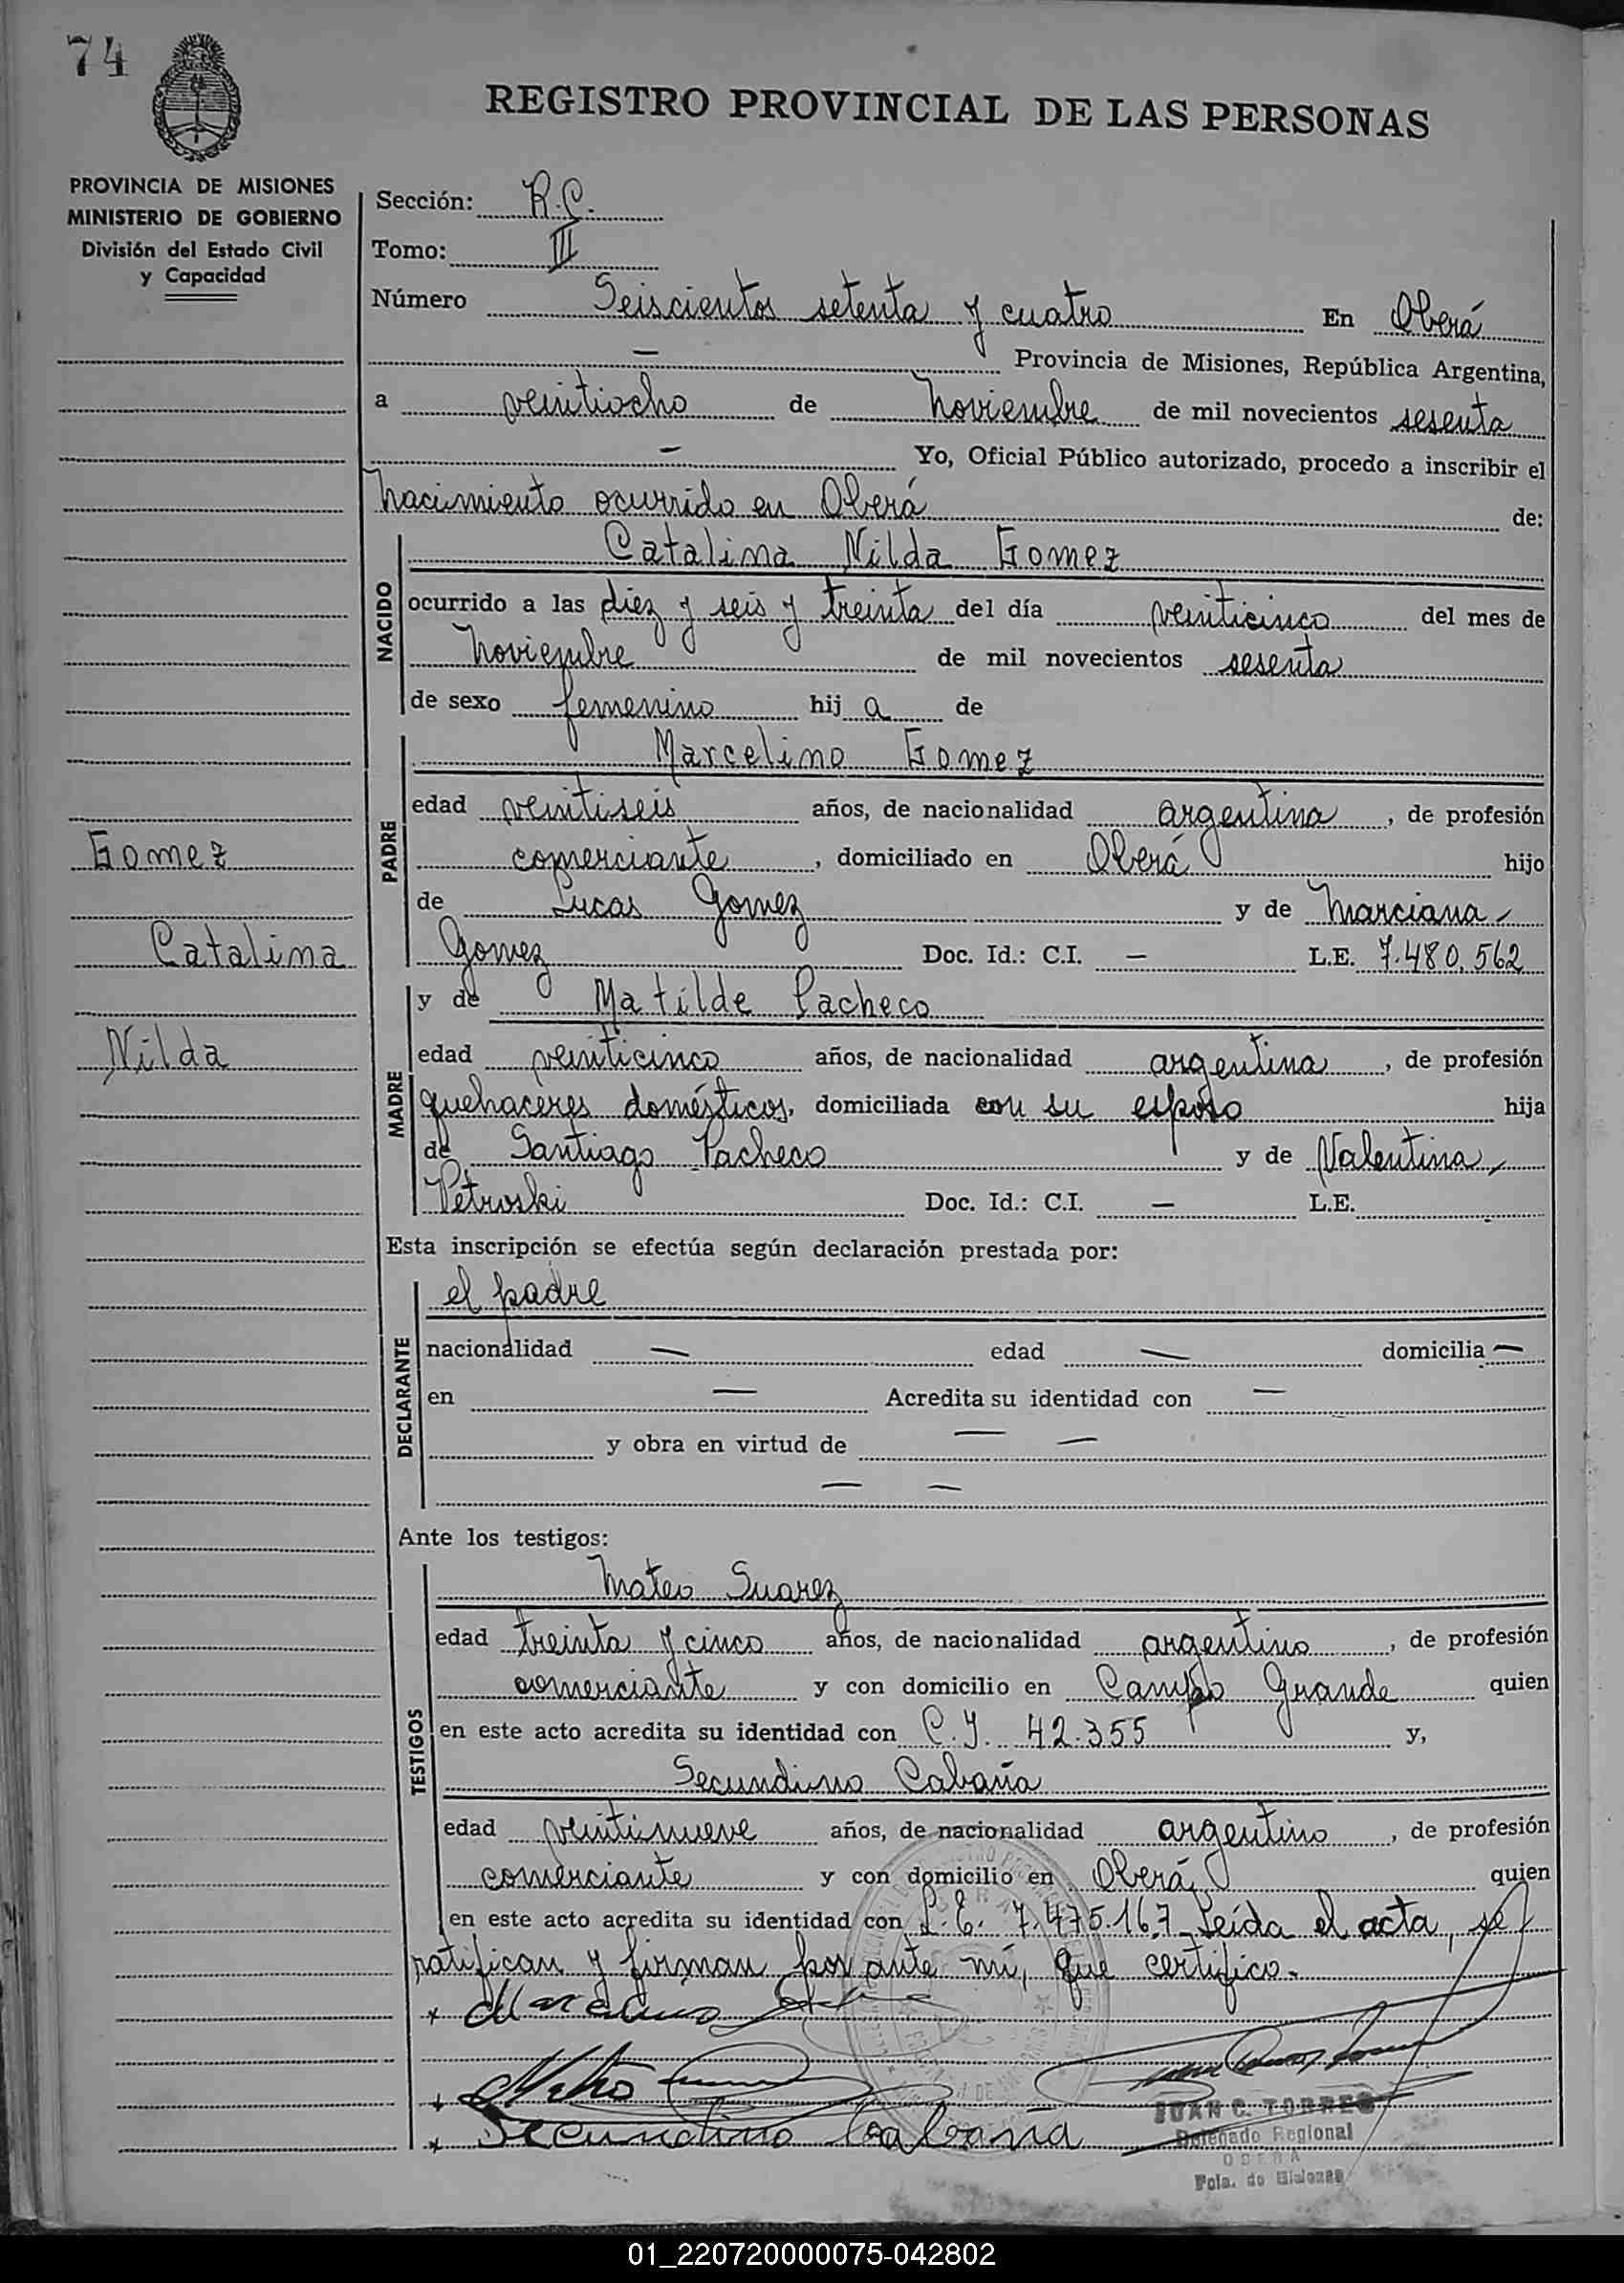 74
REGISTRO PROVINCIAL DE LAS PERSONAS
PROVINCIA DE MISIONES
MINISTERIO DE GOBIERNO
División del Estado Civil
y Capacidad
Sección: R.C.
Tomo: III
Número Seiscientos setenta y cuatro En Oberá
— Provincia de Misiones, República Argentina,
a veintiocho de Noviembre de mil novecientos sesenta
— Yo, Oficial Público autorizado, procedo a inscribir el
Nacimiento ocurrido en Oberá de:
NACIDO
Catalina Nilda Gomez
ocurrido a las diez y seis y treinta del día veinticinco del mes de
Noviembre de mil novecientos sesenta
de sexo femenino hij a de
PADRE
Marcelino Gomez
edad veintiseis años, de nacionalidad argentina, de profesión
comerciante, domiciliado en Oberá hijo
de Lucas Gomez y de Marciana
Gomez Doc. Id.: C.I. — L.E. 7.480.562
Gomez
Catalina
Nilda
MADRE
y de Matilde Pacheco
edad veinticinco años, de nacionalidad argentina, de profesión
quehaceres domésticos, domiciliada con su esposo hija
de Santiago Pacheco y de Valentina
Petroski Doc. Id.: C.I. — L.E.
Esta inscripción se efectúa según declaración prestada por:
DECLARANTE
el padre
nacionalidad — edad — domicilia —
en — Acredita su identidad con —
y obra en virtud de — —
— —
Ante los testigos:
TESTIGOS
Mateo Suarez
edad treinta y cinco años, de nacionalidad argentino, de profesión
comerciante y con domicilio en Campo Grande quien
en este acto acredita su identidad con C.I. 42.355 y,
Secundino Cabaña
edad veintinueve años, de nacionalidad argentino, de profesión
comerciante y con domicilio en Oberá quien
en este acto acredita su identidad con L.E. 7.475.167 Leída el acta, se
ratifican y firman por ante mí, que certifico.
Marcelino
Mateo
Secundino Cabaña
JUAN C. TORRES
Delegado Regional
OBERA
Pcia. de Misiones
01_220720000075-042802